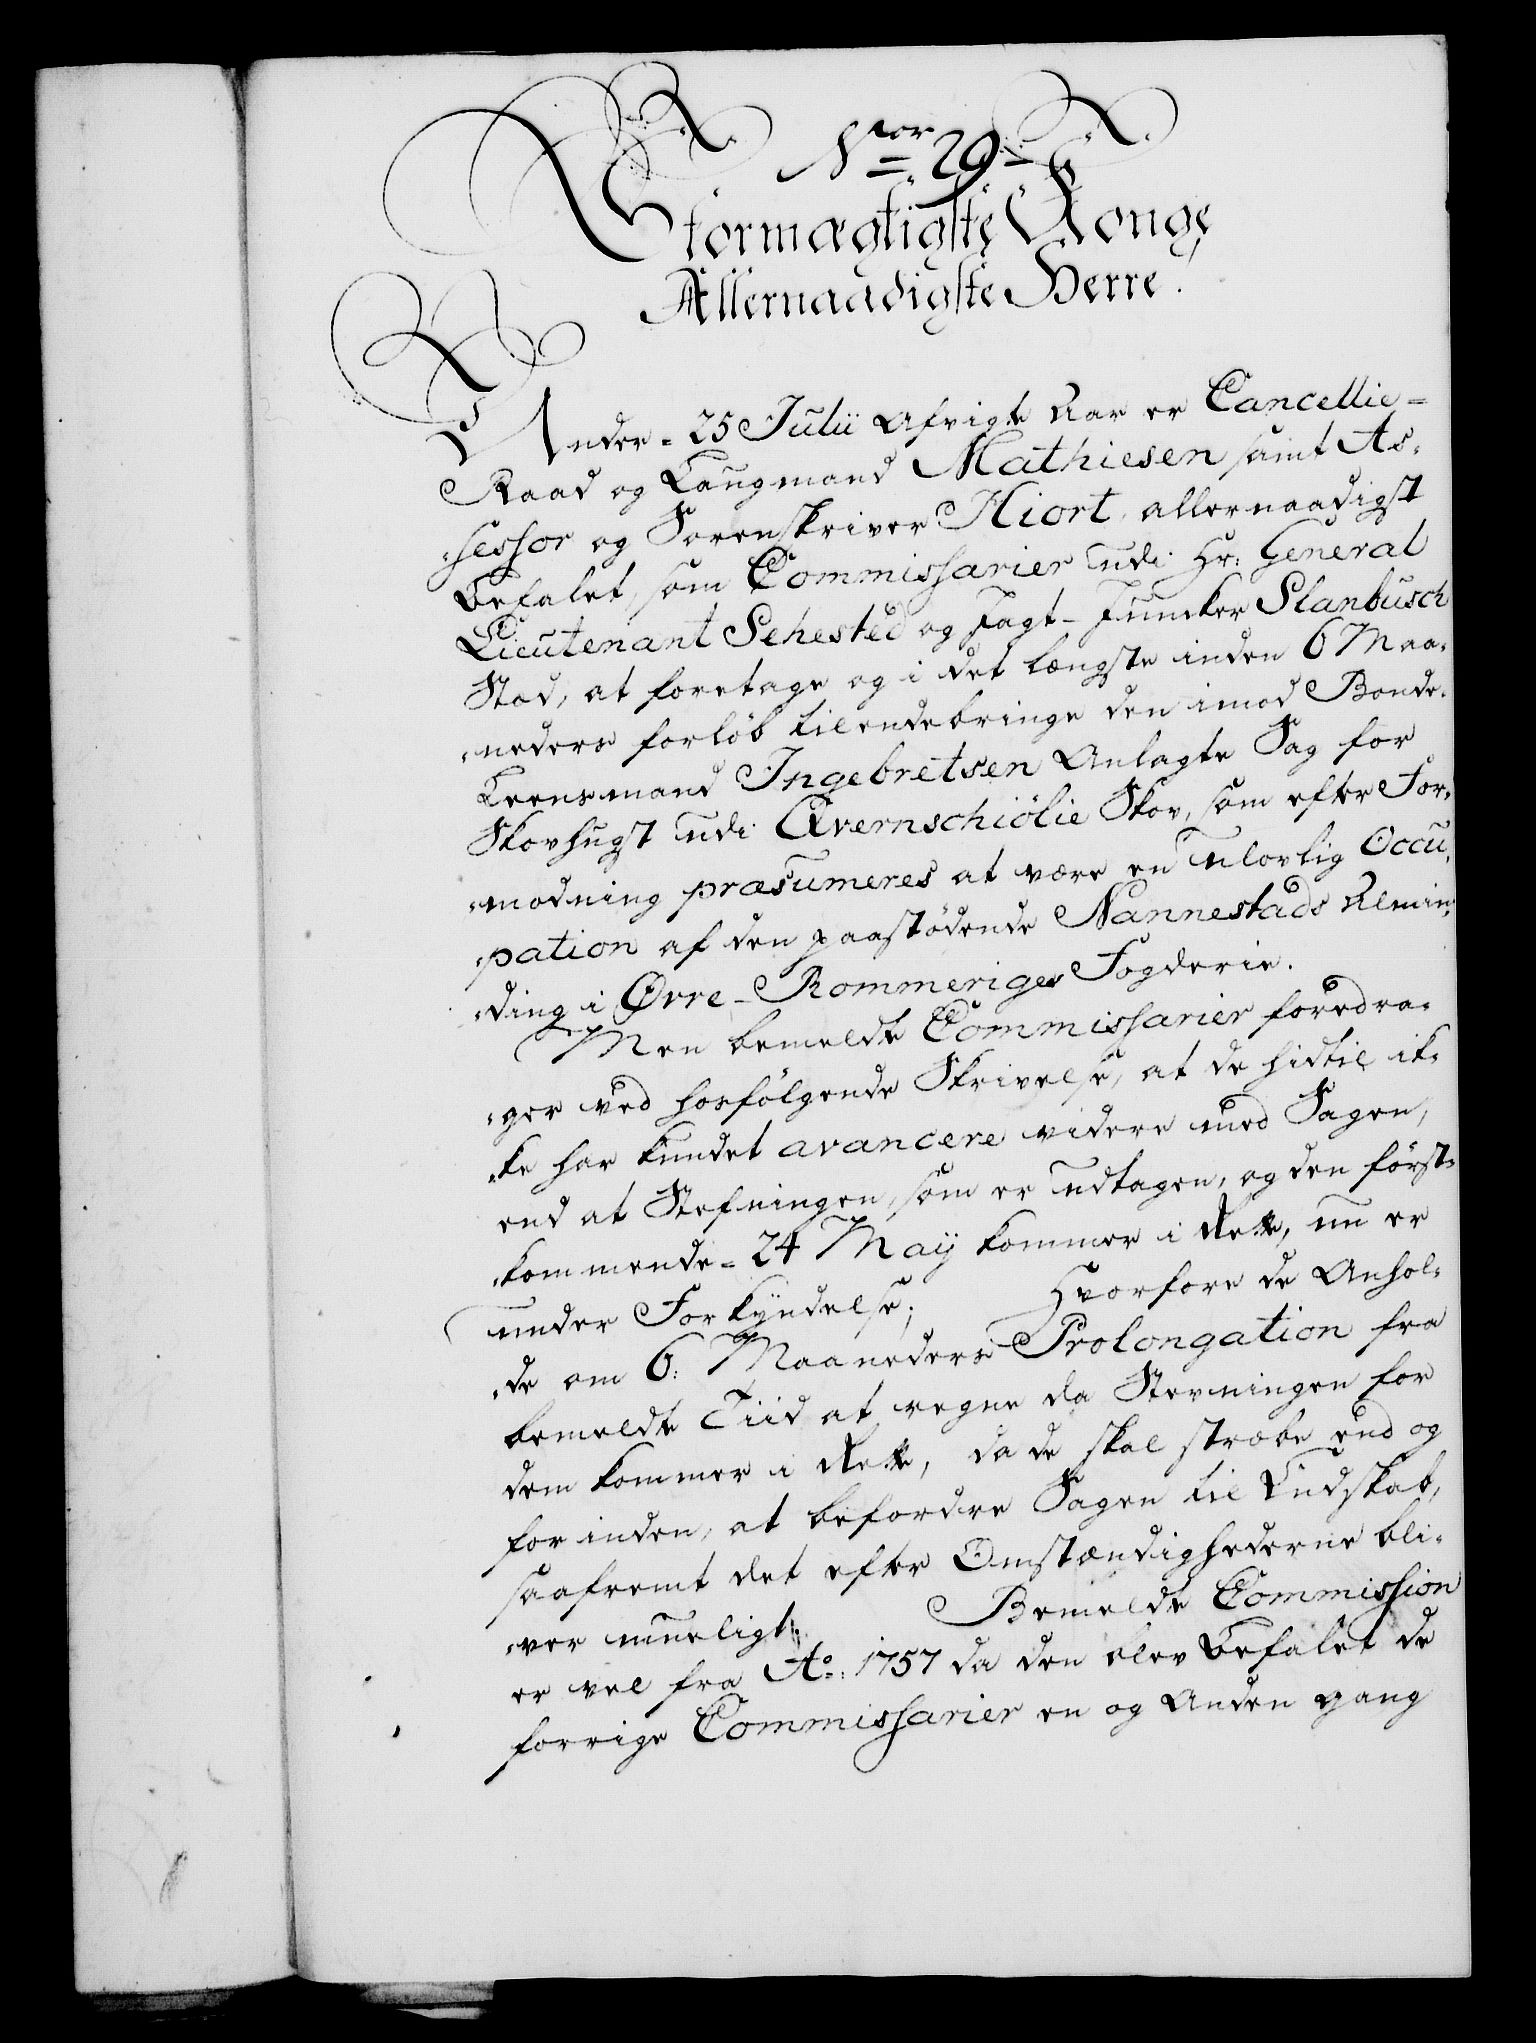 Nor 29
Stormægtigste Konge
Allernaadigste Herre.
Under 25 Julii Afvigte Aar er Cancellie-
Raad og Laugmand Mathiesen samt As-
sessor og Sorenskriver Hiort, allernaadigst
Befalet, som Commissarier udi Hr: General
Lieutenant Sehested og Jagt-Juncker Slanbusch
Stad, at foretage og i det længste inden 6 Maa-
neders forløb tilendebringe den imod Bonde-
Leensmand Ingebretsen Anlagte Sag for
Skovhugst udi Qvernschiølie Skov, som efter For-
modning præsumeres at være en ulovlig Occu-
pation af den paastødende Nannestads Almin-
ding i Øvre-Rommeriges Fogderie.
Men bemeldte Commissarier foredra-
ger ved hosfølgende Skrivelse, at de hidtil ik-
ke har kundet avancere videre med Sagen,
end at Stefningen, som er udtagen, og den først-
kommende 24 Maÿ kommer i Rette, nu er
under Forkÿndelse; Hvorfore de Anhol-
de om 6: Maaneders Prolongation fra
bemeldte Tiid at regne da Stevningen for
dem kommer i Rette, da de skal stræbe end og
for inden, at befordre Sagen til Endskab,
saafremt det efter Omstændighederne bli-
ver mueligt. Bemeldte Commission
er vel fra Ao: 1757 da den blev Befalet de
forrige Commissarier en og Anden gang